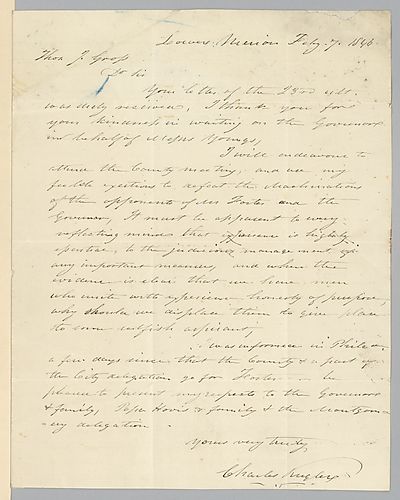 Lower Merion Feby. 7. 1846
Thos J. Gross
Dr Sir
Your letter of the 23rd ult.
was duly received, I thank you for
your kindness in waiting on the Governor
in behalf of Messrs Youngs,
I will endeavour to
attend the County meeting, and use my
feeble exertions to defeat the Machinations
of the opponents of Mr Foster and the
Governor, It must be apparent to every
reflecting mind that experience is highly
essential, to the judicious management of
any important measures, and when the
evidence is clear that we have men
who unite with experience honesty of purpose,
why should we displace them to give place
to some selfish aspirant,
I was informed in Philada
a few days since that the County & a part of
the City delegation go for Foster be
please to present my respects to the Governor
& family, Papa Hovis & family & the Montgom
-ery delegation
Yours very truly,
Charles Kugler